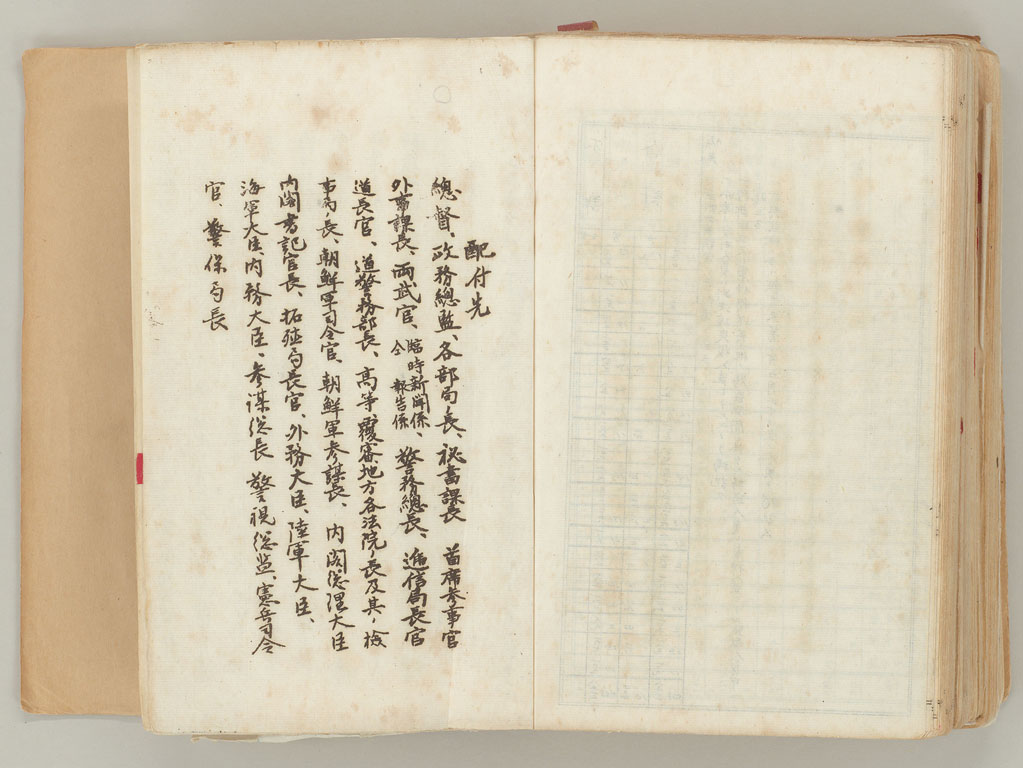 配付先
總督、政務總監、各部局長、祕書課長 首席参事官
外事課長、両武官、臨時新聞係、仝報告係 警務總長、逓信局長官
道長官、道警務部長、高等覆審地方各法院長及其ノ検
事局長、朝鮮軍司令官、朝鮮軍参謀長、内閣総理大臣
内閣書記官長、拓殖局長官、外務大臣、陸軍大臣、
海軍大臣、内務大臣、参謀総長 警視総監、憲兵司令
官、警保局長